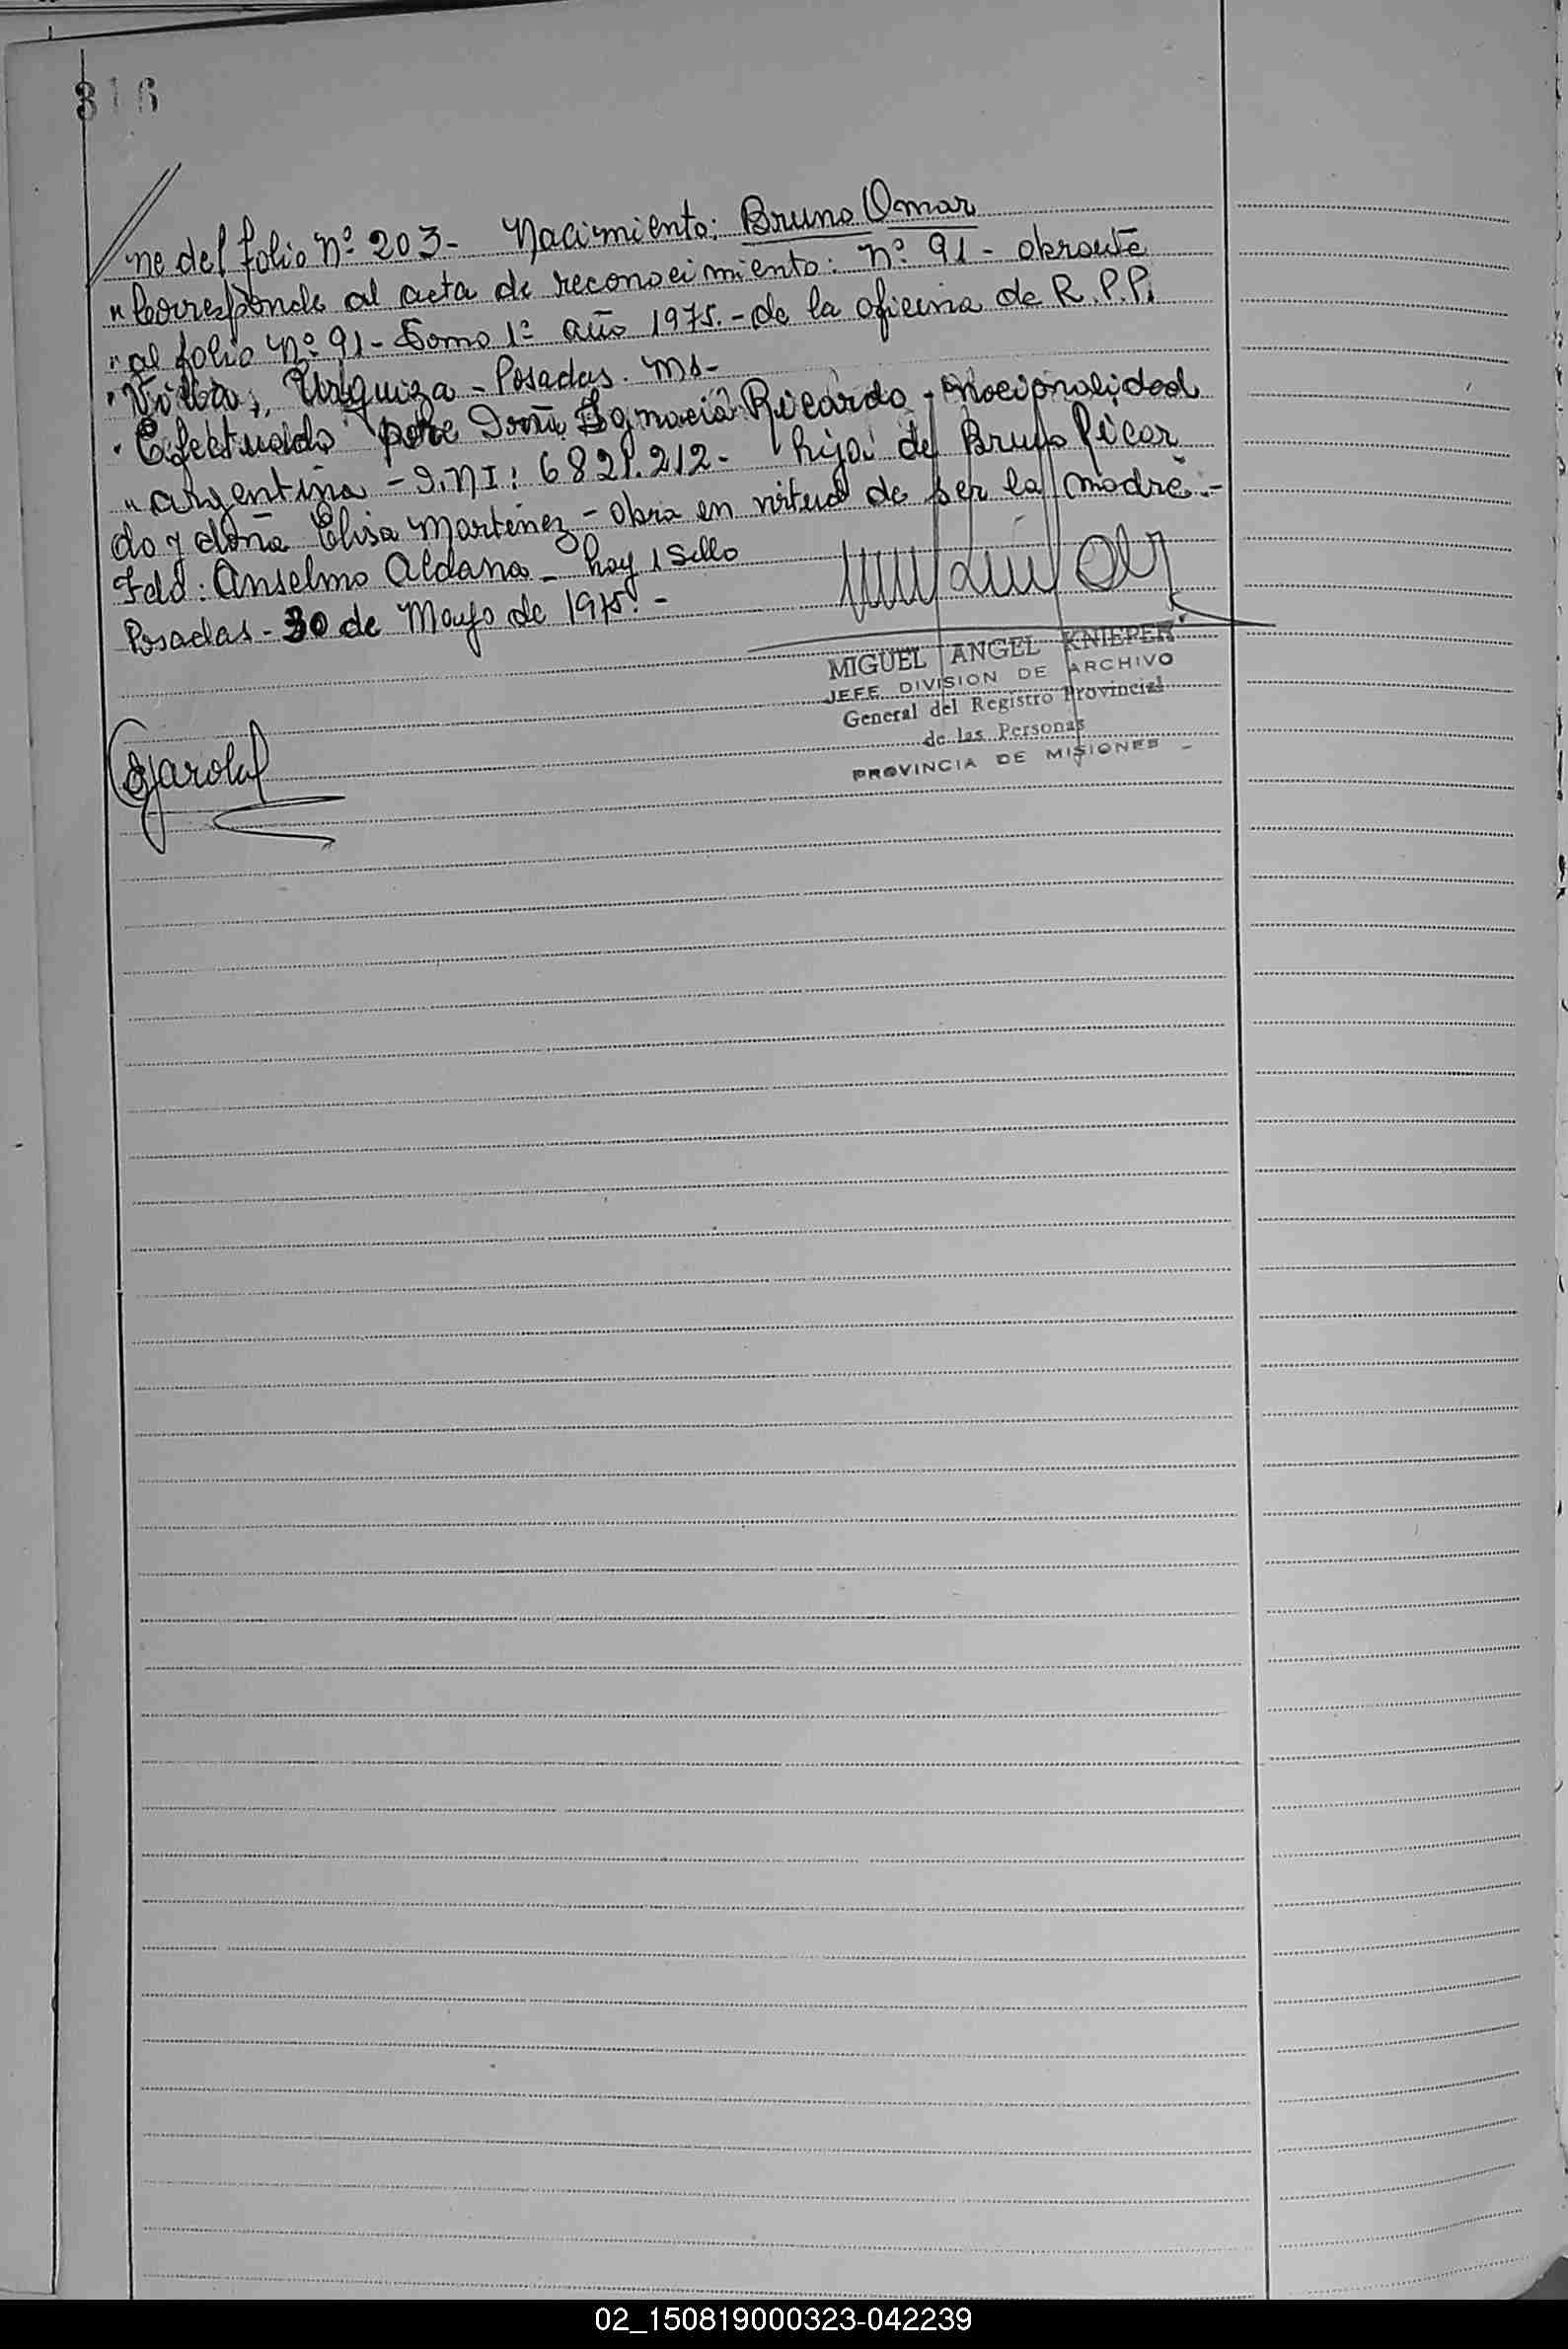 316
//ne del folio Nº 203- Nacimiento: Bruno Omar
"Corresponde al acta de reconocimiento: Nº 91 - obrante
"al folio Nº 91 - Tomo 1º año 1975.- de la oficina de R.P.P.
"Villa, Urquiza - Posadas. Ms-
"Efectuado por Doña Ignacia Ricardo - nacionalidad
"argentina - D.N.I: 6821.212- hija de Bruno Ricar
do y doña Elisa Martinez - Obra en virtud de ser la madre.-
Fdo: Anselmo Aldana - hay 1 sello
Posadas - 30 de Mayo de 1975.-
MIGUEL ANGEL KNIEPER
JEFE DIVISION DE ARCHIVO
General del Registro Provincial
de las Personas
PROVINCIA DE MISIONES -
02_150819000323-042239